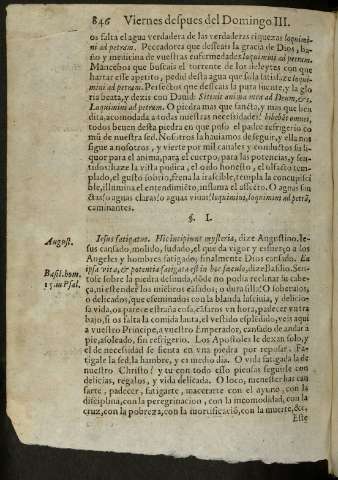 846 Viernes despues del Domingo III.
os falta el agua verdadera de las verdaderas riquezas loquimini
ni ad petram. Peccadores que desseais la gracia de Dios, ba-
ño y medicina de vuestras enfermedades loquimini ad petram.
Mancebos que buscais el torrente de los deleytes con que
hartar esse apetito, pedid desta agua que sola satisfaze loqui-
mini ad petram. Perfectos que desseais la pura fuente, y la glo
ria beata, y dezis con Dauid: Sitiuit anima mea ad Deum, &c.
Loquimini ad petram. O piedra mas que sancta, y mas que ben
dita, acomodada a todas nuestras necessidades! bibebāt omnes,
todos beuen desta piedra en que puso el padre refrigerio co
mū de nuestra sed. Nosotros la hauiamos de seguir, y ella nos
sigue a nosotros, y vierte por mil canales y conductos su li-
quor para el anima, para el cuerpo, para las potencias, y sen-
tidos: haze la vista pudica, el oido honesto, el olfacto tem-
plado, el gusto sobrio, frena la irascible, templa la concupisci
ble, illumina el entendimiēto, inflama el affecto. O aguas san
ctas! o aguas claras! o aguas viuas! loquimini, loquimini ad petrā,
caminantes.
§. I.
August.
Iesus fatigatus. Hic incipiunt mysteria, dize Augustino. Ie-
sus cansado, molido, sudado, el que da vigor y esfuerço a los
Angeles y hombres fatigado, finalmente Dios cansado. Ea
Basil. hom.
15. in Psal.
ipsa vita, & potentia fatigata est in hoc sæculo, dize Basilio. Sen-
tose sobre la piedra desnuda, dōde no podia reclinar su cabe-
ça, ni estender los miēbros cansados; o dura silla! O soberuios,
o delicados, que afeminados con la blanda lasciuia, y delicio-
sa vida, os parece estraña cosa, estaros vn hora, padecer vn tra
bajo, si os falta la comida lauta, el vestido esplēdido, veis aqui
a vuestro Principe, a vuestro Emperador, cansado de andar a
pie, asoleado, sin refrigerio. Los Apostoles le dexan solo, y
el de necesidad se sienta en vna piedra por reposar. Fa-
tigale la sed, la hambre, y es medio dia. O vida fatigada la de
nuestro Christo! y tu con todo esso piensas seguirle con
delicias, regalos, y vida delicada. O loco, menester has can
sarte, padecer, fatigarte, macerarte con el ayuno, con la
disciplina, con la peregrinacion, con la incomodidad, con la
cruz, con la pobreza, con la mortificació, con la muerte, &c.
Este